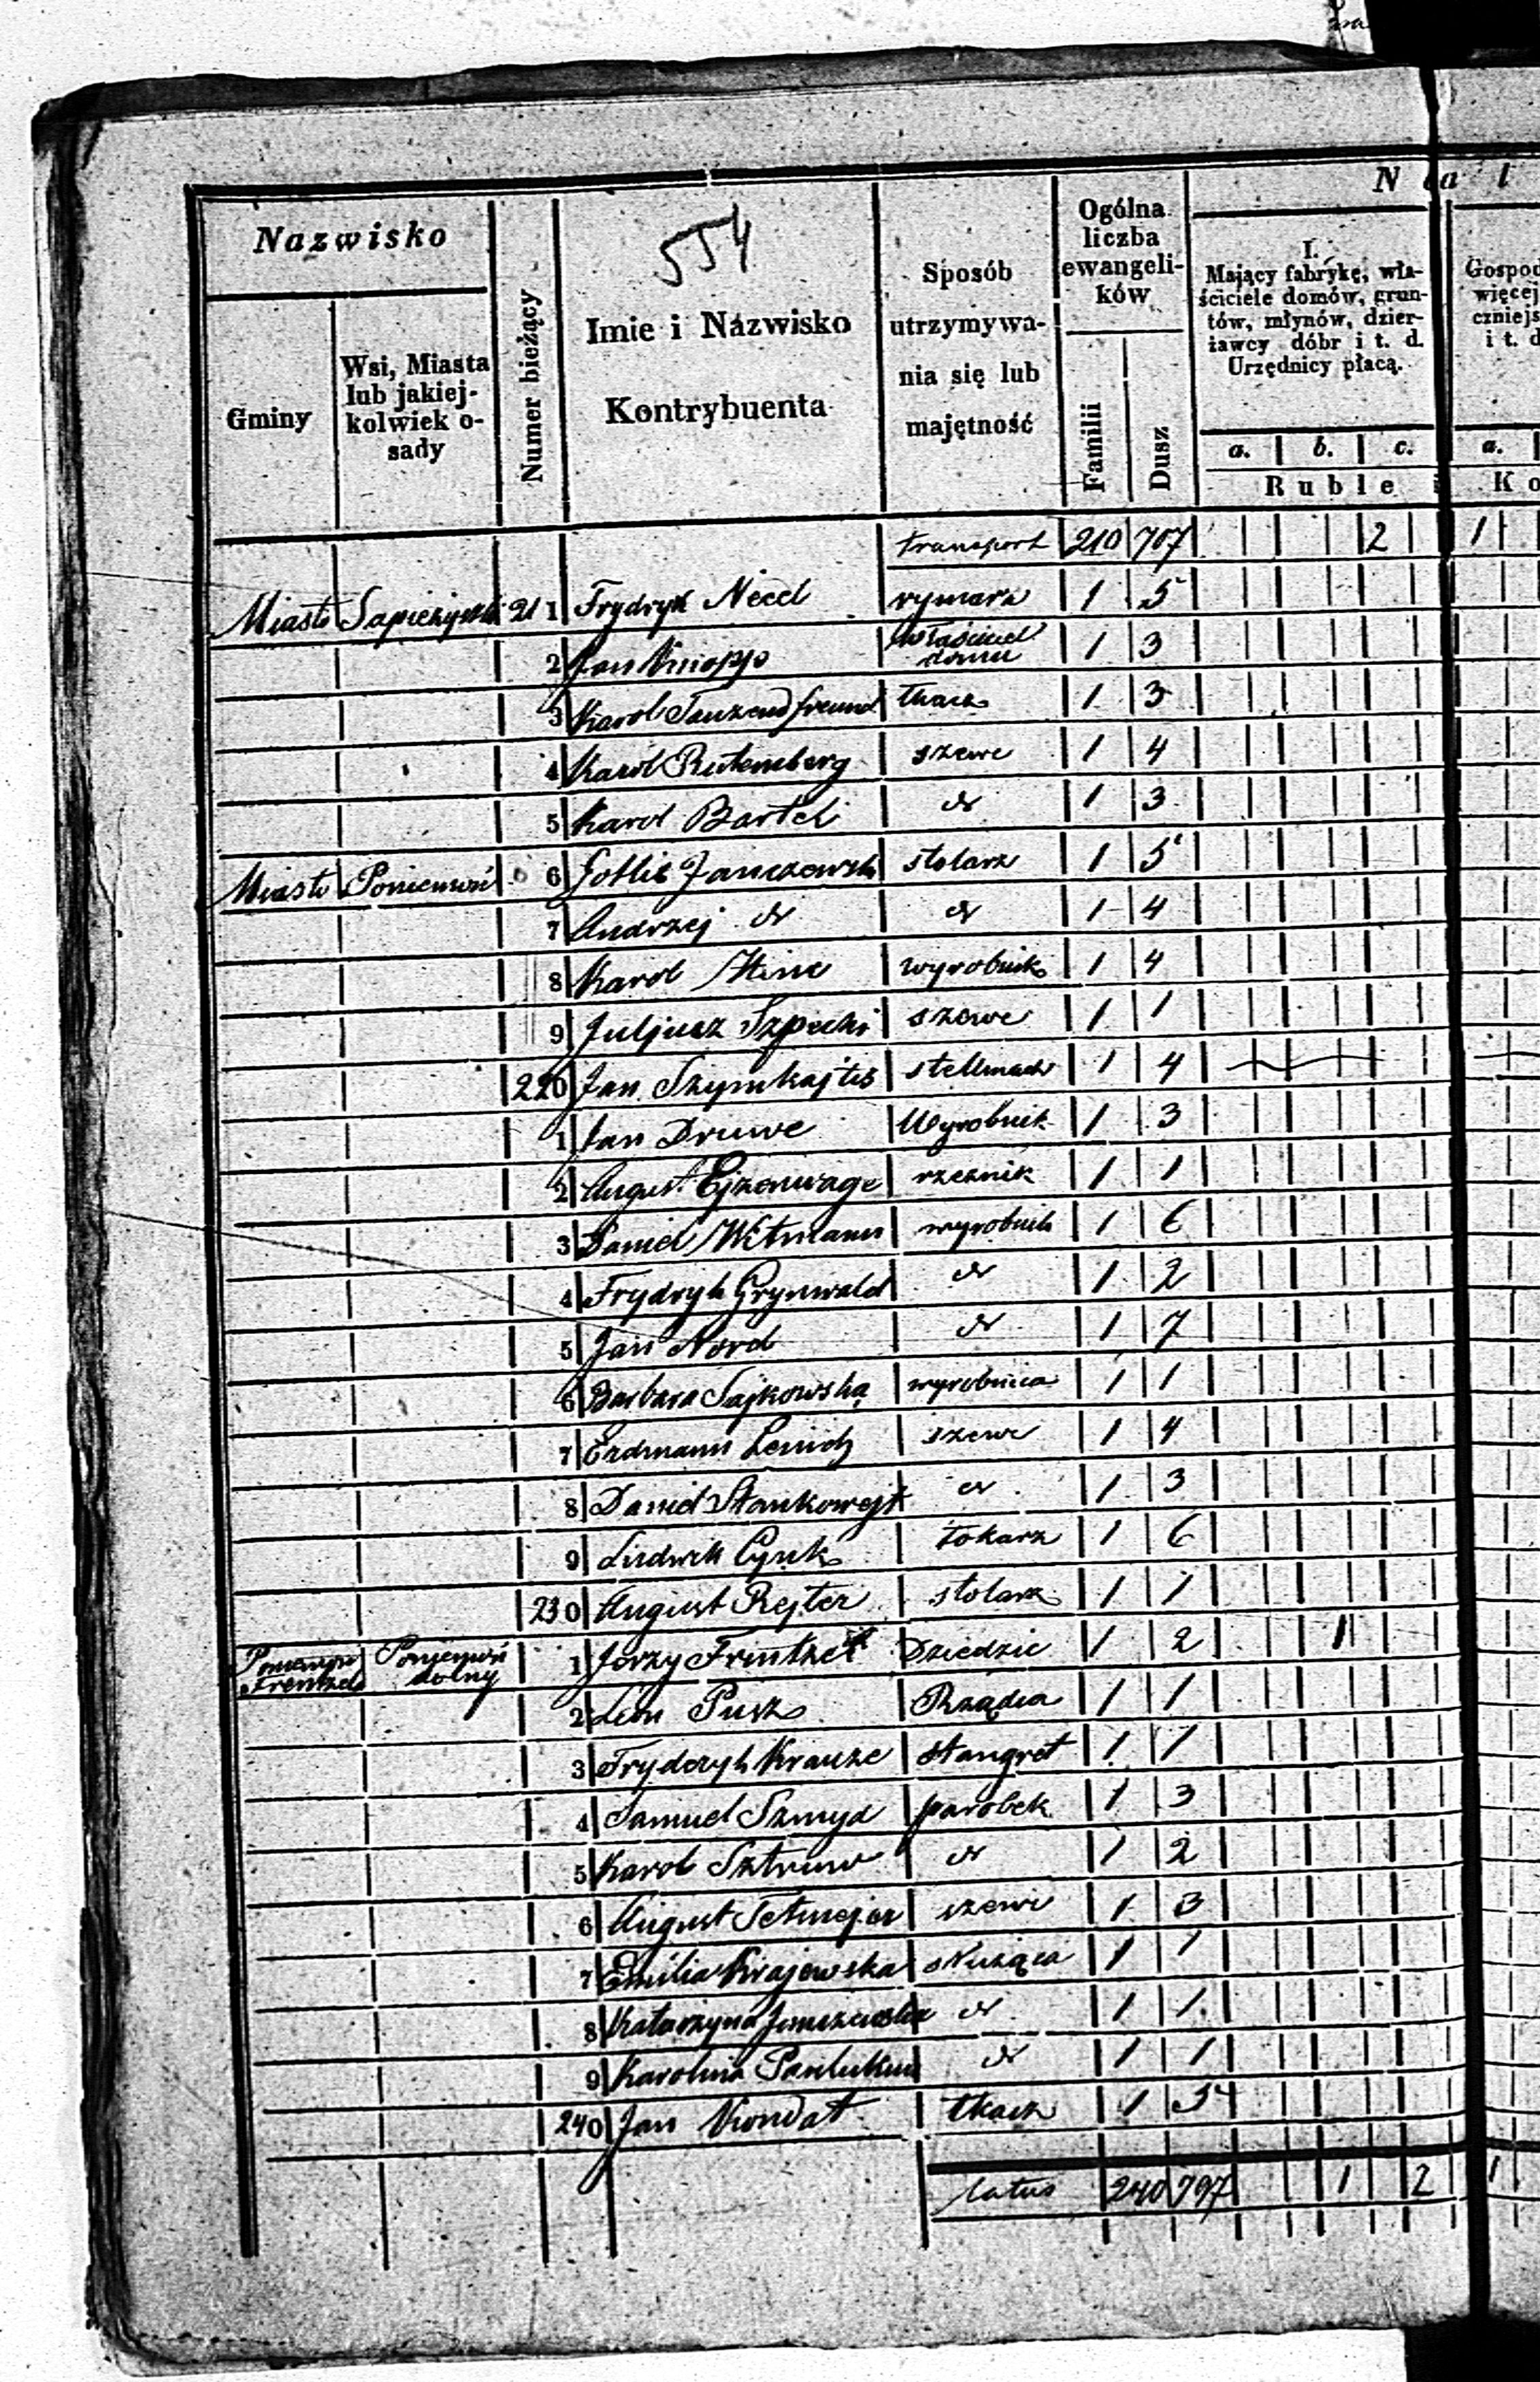 554
Nazwisko
Gminy
Wsi, Miasta
lub jakiej-
kolwiek o-
sady
Numer bieżący
Imie i Nazwisko
Kontrybuenta
Sposób
utrzymywa-
nia się lub
majętność
Ogólna
liczba
ewangeli-
ków
Familii
Dusz
N a l
I.
Mający fabrykę, wła-
ściciele domów, grun-
tów, młynów, dzier-
żawcy dóbr i t. d.
Urzędnicy płacą.
a. b. c.
Ruble
Gospod
więcej
czniejs
i t. d
a.
Ko
transport 210 707 2 1
Miasto Sapieżyszki 21 1 Frydryk rymarz 1 5
2 Jan Knopp właściciel domu 1 3
3 Karol Tauzendfreund tkacz 1 3
4 Karol Rutemberg szewc 1 4
5 Karol Bartel dt 1 3
Miasto Poniemoń 6 Gotlib Janczewski stolarz 1 5
7 Andrzej dt dt 1 4
8 Karol wyrobnik 1 4
9 Juljusz Szpecht szewc 1 1
220 Jan Szymkajtis stellmach 1 4
1 Jan Druwe Wyrobnik 1 3
2 August Ejzenwage rzeźnik 1 1
3 Daniel Witmann wyrobnik 1 6
4 Frydryh Grynwald dt 1 2
5 Jan Nord dt 1 7
6 Barbara Sajkowska wyrobnica 1 1
7 Erdmann szewc 1 4
8 Daniel Stankowejt dt 1 3
9 Ludwik Cynk tokarz 1 6
230 August Rejter stolarz 1 1
Poniemoń Frentzela Poniemoń dolny 1 Jerzy Frentzel Dziedzic 1 2 1
2 Leon Pusz Rządca 1 1
3 Fryderyk Krauze stangret 1 1
4 Samuel Szmyd parobek 1 3
5 Karol dt 1 2
6 August Tetmejer szewc 1 3
7 Emilia Krajewska służąca 1 1
8 Katarzyna dt 1 1
9 Karolina dt 1 1
240 Jan Kondat tkacz 1 5
latus 240 797 1 2 1